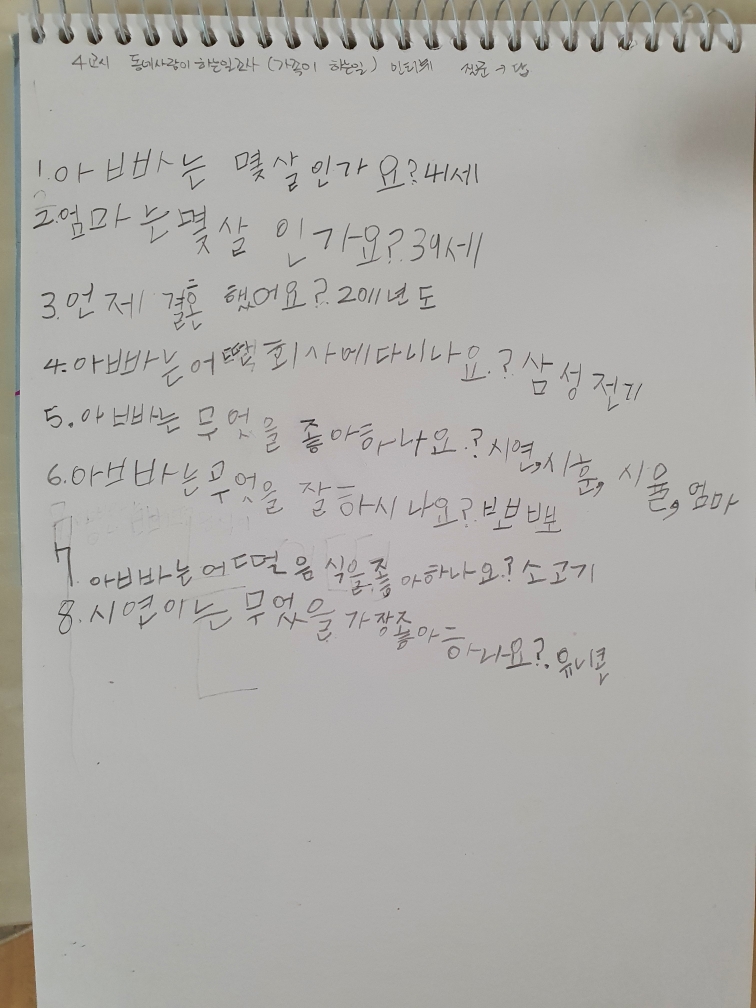 4교시 동네사람이 하는일조사 (가족이 하는일) 인터뷰 질문 → 답
1. 아빠는 몇살인가요? 41세
2. 엄마는몇살 인가요? 39세
3. 언제 결혼 했어요? 2011년도
4. 아빠는어떤회사에다니나요? 삼성전기
5. 아빠는 무엇을 좋아하나요? 시연, 시훈, 시율, 엄마
6. 아빠는무엇을 잘하시나요? 뽀뽀
7. 아빠는어떤음식을좋아하나요? 소고기
8. 시연이는 무엇을가장좋아하나요? 유니콘